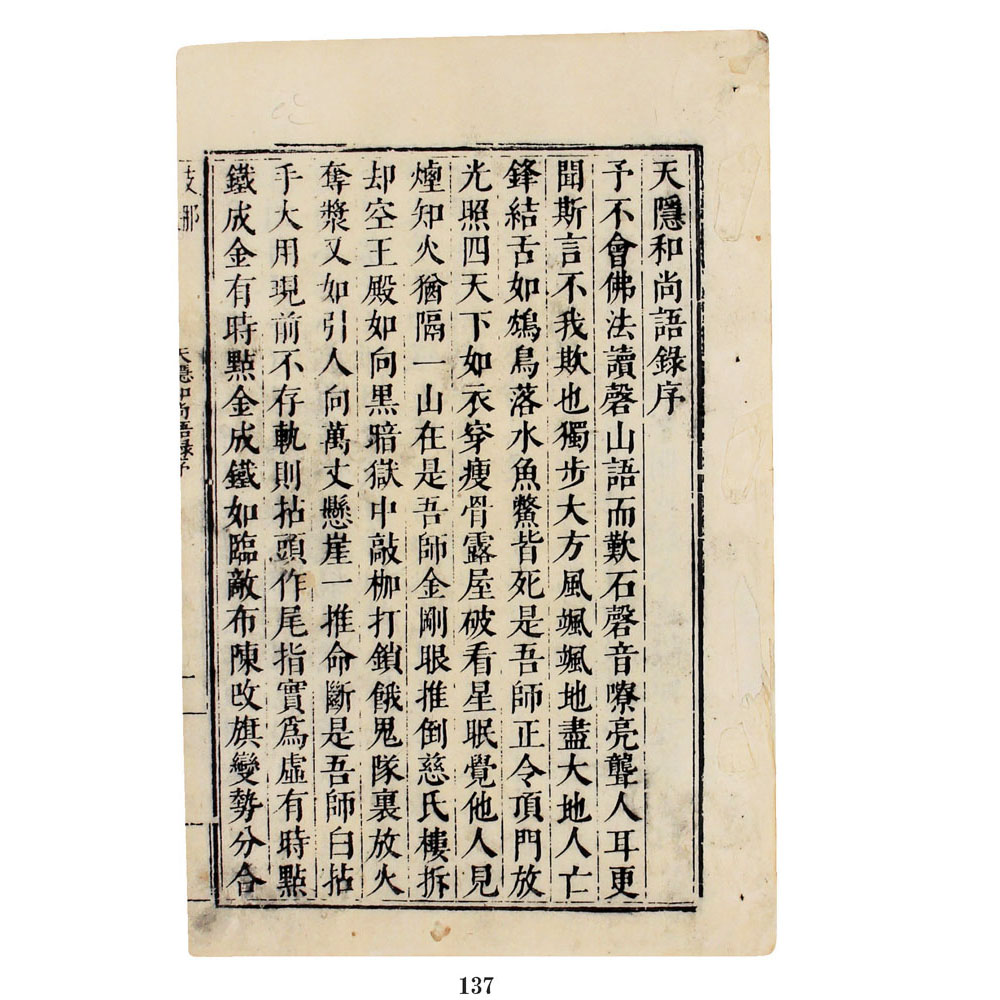 天隱和尚語錄序
予不會佛法讀磬山語而歎石磬音嘹亮聾人耳更
聞斯言不我欺也獨步大方風颯颯地盡大地人亡
鋒結舌如鴆鳥落水魚鱉皆死是吾師正令頂門放
光照四天下如衣穿瘦骨露屋破看星眠覺他人見
煙知火猶隔一山在是吾師金剛眼推倒慈氏樓拆
却空王殿如向黑暗獄中敲枷打鎖餓鬼隊裏放火
奪漿又如引人向萬丈懸崖一推命斷是吾師白拈
手大用現前不存軌則拈頭作尾指實爲虛有時點
鐵成金有時點金成鐵如臨敵布陳改旗變勢分合
支那
天隱和尚語錄序
一
137